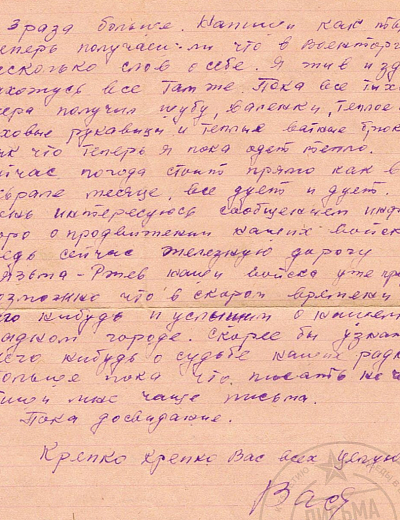 3 раза больше. Напиши как т
теперь получаеш-ли что в Военторг
несколько слов о себе. Я жив и зд
нахожусь все там же. Пока все тих
вчера получил шубу, валенки, теплое
ховые рукавици и теплые ватные брюк
так что теперь я пока одет тепло.
Сейчас погода стоит прямо как в
феврале месяце, все дует и дует.
очень интересуюсь сообщением инф
бюро о продвижении наших войск
ведь сейчас железную дорогу
Вязьма-Ржев наши войска уже
возможно что в скором времени
чего нибудь и услышим о нашем
родном городе. Скорее бы узна
чего нибудь о судьбе наших родн
Больше пока что писать не
пиши мне чаще письма.
Пока досвидание.
Крепко крепко Вас всех целую
Вася
ПИСЬМА